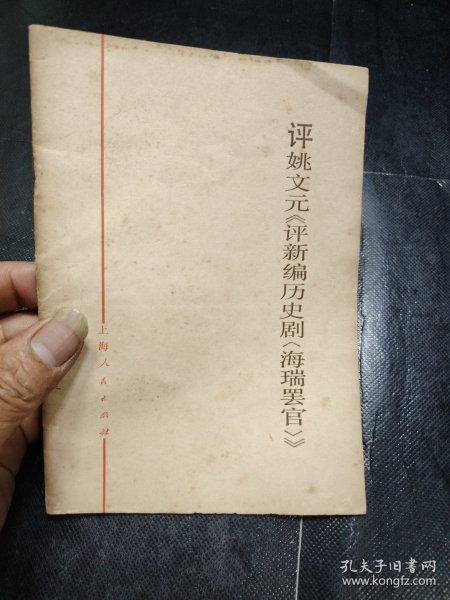 评姚文元《评新编历史剧〈海瑞罢官〉》
上海人民出版社
孔夫子旧书网
www.kongfz.com